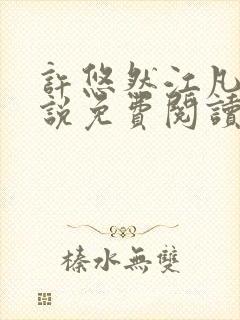 許悠然江凡
說免費閱讀
榛水無雙